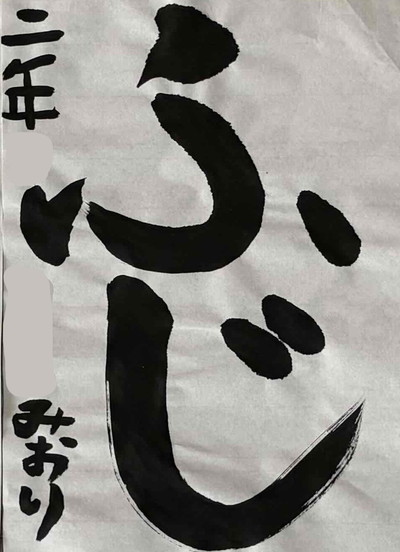 ふじ
二年
みおり